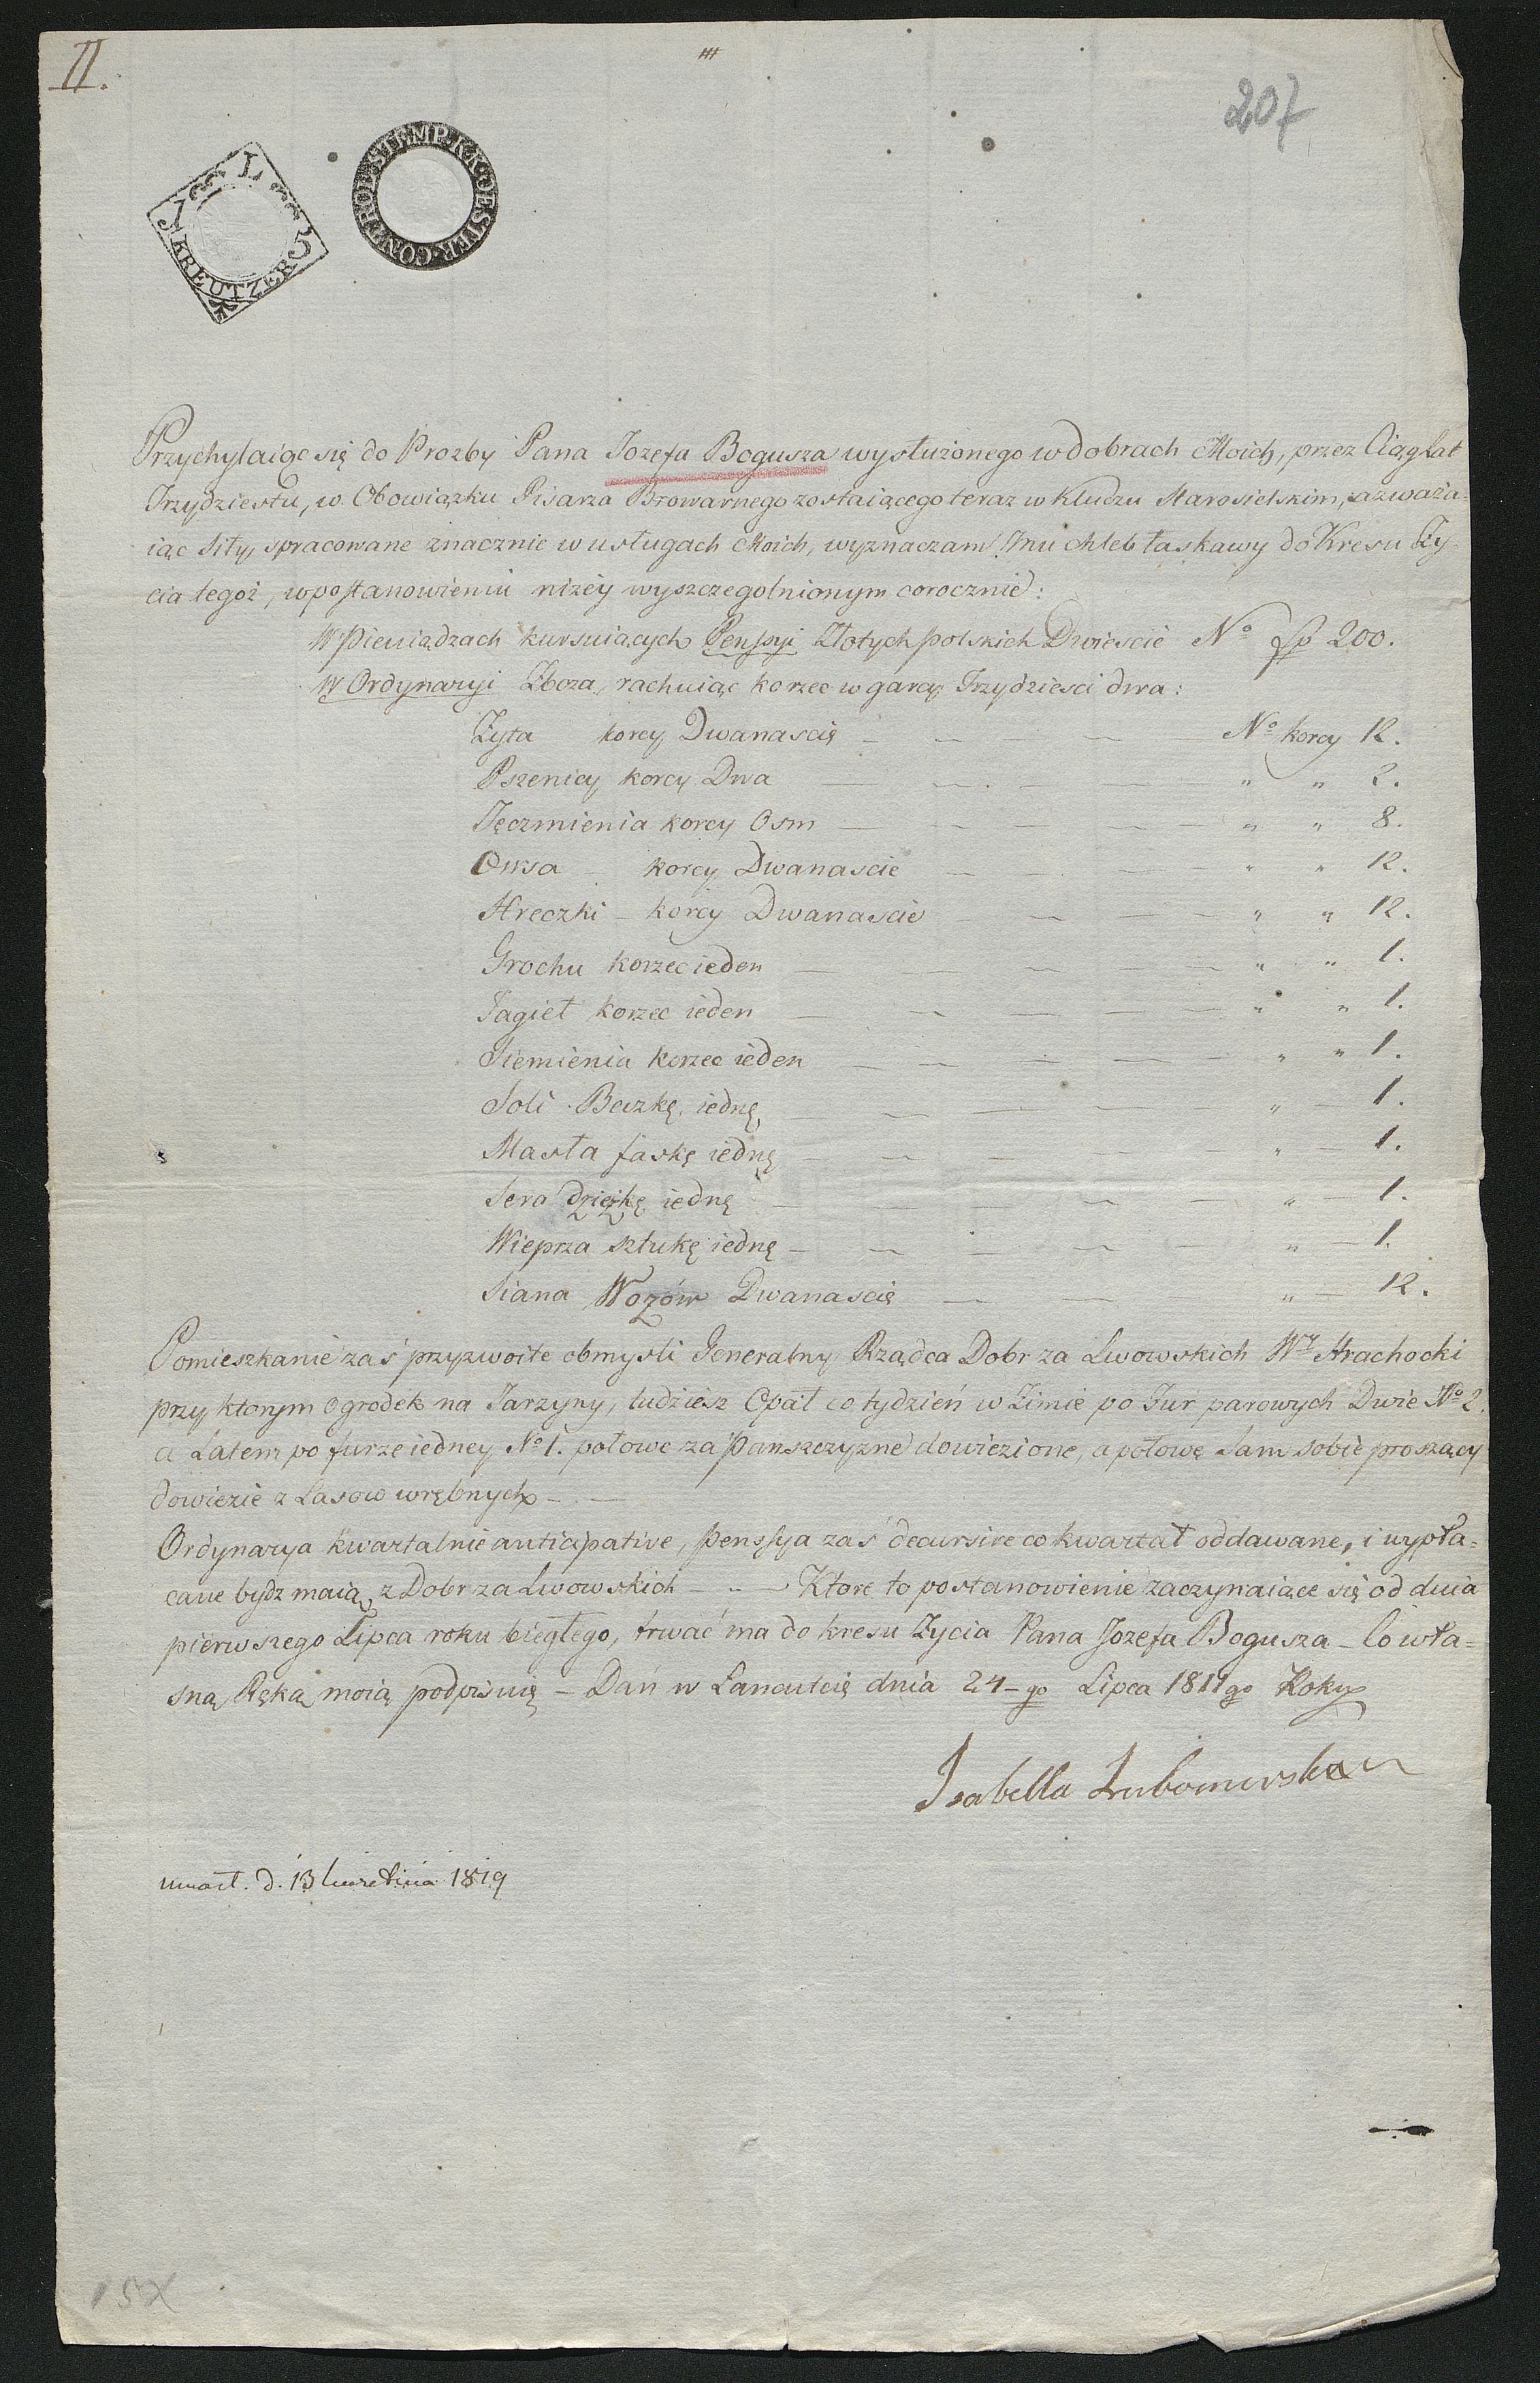 II.
207
L
5 5
KREUTZER
CONTROL STEMP. K.K. OESTER.
Przychylaiąc się do Prozby Pana Jozefa Bogusza wysłużonego w dobrach Moich, przez Ciąg Lat
Trzydziestu, w Obowiązku Pisarza Browarnego zostaiącego teraz w Kluczu Starosielskim, a zważa=
iąc Siły spracowane znacznie w usługach Moich, wyznaczam Jmu chleb łaskawy do Kresu Ży-
cia tegoż, w postanowieniu niżey wyszczegolnionym corocznie:
W Pieniądzach kursuiących Penssyi Złotych polskich Dwieście No fp 200.
W Ordynaryi Zboża, rachuiąc korzec w garcy Trzydzieści dwa:
Żyta korcy Dwanascie — — — — No korcy 12.
Pszenicy korcy Dwa — — — — " " 2.
Jęczmienia korcy Osm — — — — — " " 8.
Owsa — korcy Dwanascie — — — — " " 12.
Hreczki — korcy Dwanascie — — — — " " 12.
Grochu korzec ieden — — — — — " " 1.
Jagieł korzec ieden — — — — — " " 1.
Siemienia korzec ieden — — — — — " " 1.
Soli Beczkę iednę — — — — " — 1.
Masła faskę iednę — — — — — " — 1.
Sera dzieżkę iednę — — — — — " 1.
Wieprza sztukę iednę — — — — — " — 1.
Siana Wozów Dwanascie — — — — " — 12.
Pomieszkanie zaś przyzwoite obmysli Generalny Rządca Dobr za Lwowskich Wy Hrachocki
przy ktorym ogrodek na Jarzyny, tudziesz Opał co tydzień w Zimie po Fur parowych Dwie No 2.
a Latem po furze iedney No 1. połowe za Panszczyznę dowiezione, a połowę Sam sobie proszący
dowiezie z Lasow wrębnych — —
Ordynarya kwartalnie anticipative, penssya zaś decursive co kwartał oddawane, i wypła=
cane bydz maią z Dobr za Lwowskich — " — Ktore to postanowienie zaczynaiące się od dnia
pierwszego Lipca roku biegłego, trwać ma do kresu Życia Pana Jozefa Bogusza — Co wła=
sną Ręką moią podpisuię — Dań w Łancucie dnia 24-go Lipca 1811go Roku
Isabella Lubomirska
umarł. d. 13 kwietnia 1819
15X